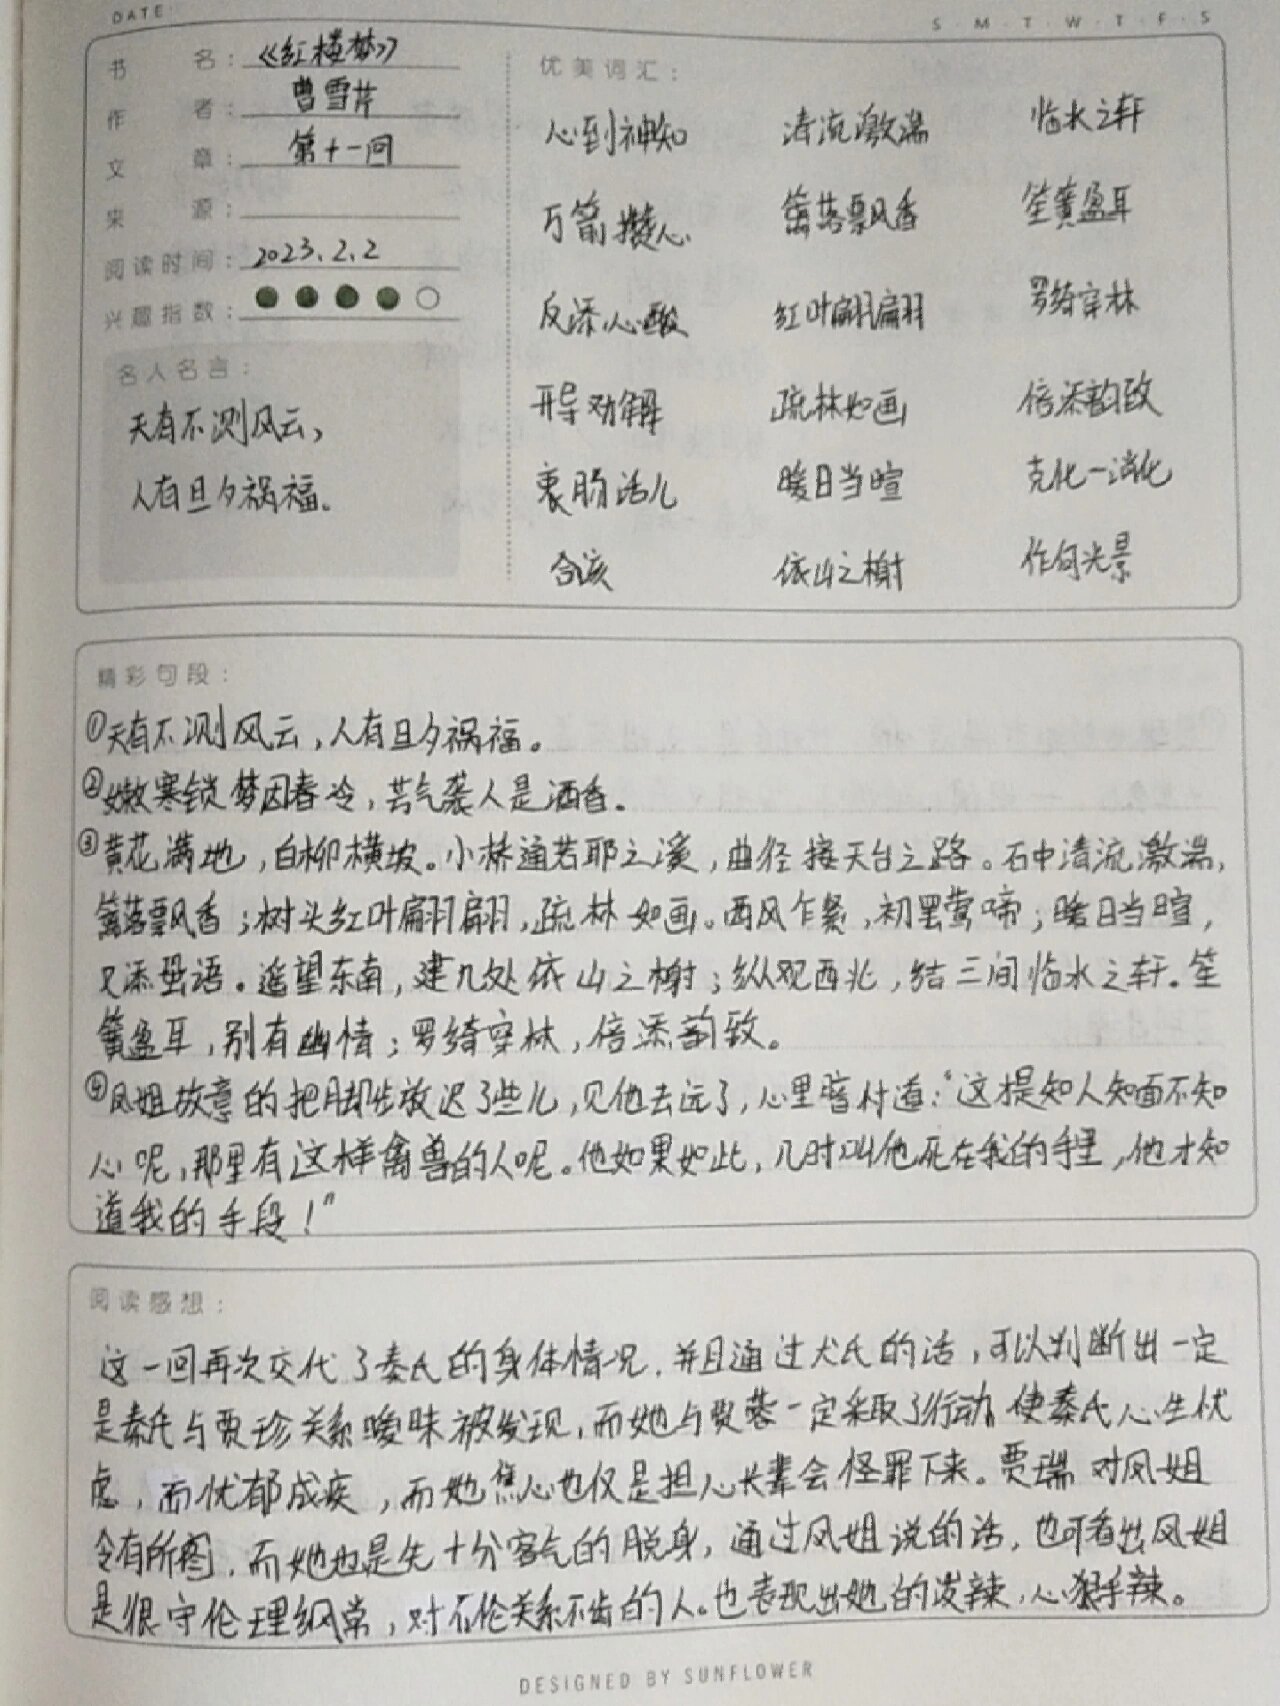 DATE:
S·M·T·W·T·F·S
书名：《红楼梦》
作者：曹雪芹
文章：第十一回
来源：
阅读时间：2023.2.2
兴趣指数：
名人名言：
天有不测风云，
人有旦夕祸福。
优美词汇：
心到神知 清流激湍 临水之轩
万箭攒心 篱落飘香 笙簧盈耳
反添心酸 红叶翩翩 罗绮穿林
开导劝解 疏林如画 倍添韵致
衷肠话儿 暖日当暄 克化一消化
合该 依山之榭 作何光景
精彩句段：
①天有不测风云，人有旦夕祸福。
②嫩寒锁梦因春冷，芳气袭人是酒香。
③黄花满地，白柳横坡。小桥通若耶之溪，曲径接天台之路。石中清流激湍，
篱落飘香；树头红叶翩翩，疏林如画。西风乍紧，初罢莺啼；暖日当暄，
又添蛩语。遥望东南，建几处依山之榭；纵观西北，结三间临水之轩。笙
簧盈耳，别有幽情；罗绮穿林，倍添韵致。
④凤姐故意的把脚步放迟了些儿，见他去远了，心里暗忖道：“这才是知人知面不知
心呢，那里有这样禽兽的人呢。他如果如此，几时叫他死在我的手里，他才知
道我的手段！”
阅读感想：
这一回再次交代了秦氏的身体情况，并且通过尤氏的话，可以判断出一定
是秦氏与贾珍关系暧昧被发现，而她与贾蓉一定采取了行动，使秦氏心生忧
虑，而忧郁成疾，而她焦心也仅是担心长辈会怪罪下来。贾瑞对凤姐
令有所图，而她也是先十分客气的脱身，通过凤姐说的话，也可看出凤姐
是很守伦理纲常，对不伦关系不齿的人。也表现出她的泼辣，心狠手辣。
DESIGNED BY SUNFLOWER